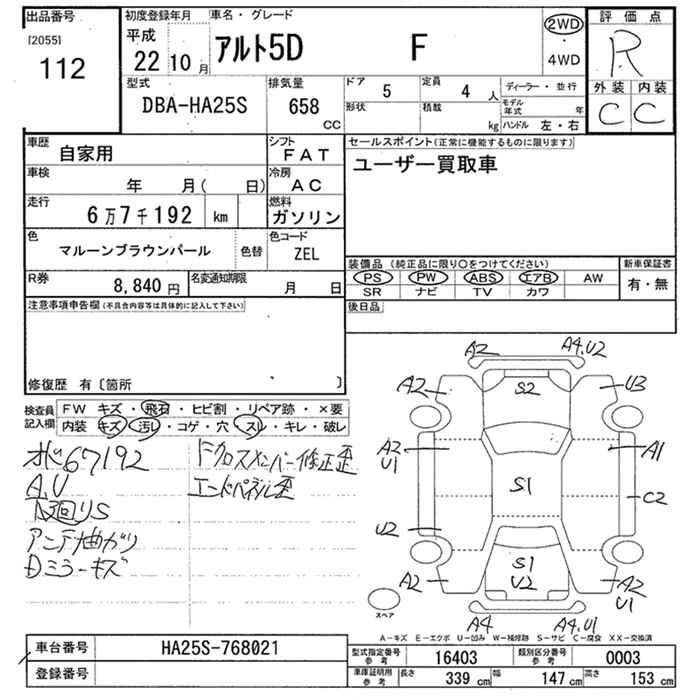 出品番号
[2055]
112
初度登録年月
平成
22 10 月
車名・グレード
アルト5D F
2WD
・
4WD
評価点
R
外装 内装
C C
型式
DBA-HA25S
排気量
658
CC
ドア
5
定員
4 人
形状
積載
kg
ディーラー・並行
モデル年式 年
ハンドル 左・右
車歴
自家用
シフト
FAT
セールスポイント(正常に機能するものに限ります)
ユーザー買取車
車検
年 月( 日)
冷房
AC
走行
6万7千192 km
燃料
ガソリン
色
マルーンブラウンパール
色替
色コード
ZEL
装備品 (純正品に限り〇をつけてください)
PS PW ABS エアB AW
SR ナビ TV カワ
新車保証書
有・無
R券
8,840 円
名変通知期限
月 日
後日品
注意事項申告欄(不具合内容等は具体的に記入して下さい)
修復歴 有〔箇所 〕
検査員記入欄
FW キズ・飛石・ヒビ割・リペア跡・×要
内装 キズ・汚レ・コゲ・穴・スレ・キレ・破レ
67192
A,U
回りS
アンテナ曲がり
Dミラーキズ
Fクロスメンバー修正歪
エンドパネル歪
A2
A4.U2
A2
S2
U3
A2
U1
A1
S1
C2
U2
S1
U2
A2
A2
U1
A4
A4.U1
スペア
A－キズ E－エクボ U－凹み W－補修跡 S－サビ C－腐食 XX－交換済
車台番号
HA25S-768021
登録番号
型式指定番号
参考
16403
類別区分番号
参考
0003
車庫証明用
参考
長さ
339 cm
幅
147 cm
高さ
153 cm